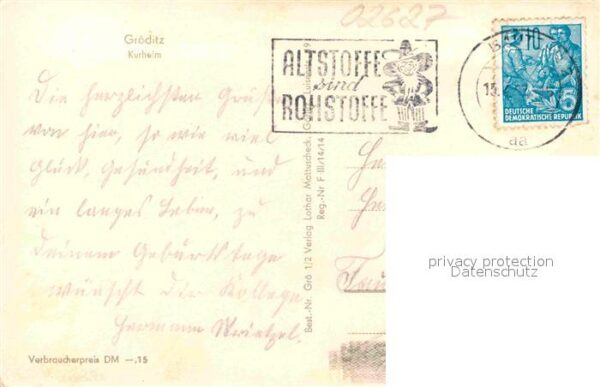 02627
Gröditz
Kurheim
ALTSTOFFE
sind
ROHSTOFFE
BAUTZEN
15.
aa
10
5
DEUTSCHE
DEMOKRATISCHE REPUBLIK
Die herzlichsten Grüße
von hier, so wie viel
Glück, Gesundheit, und
ein langes Leben, zu
Deinem Geburtstage
wünscht Dir Kollege
Hermann
Best.-Nr. Grö 1/2 Verlag Lothar Mattuscheck,
Reg.-Nr F III/14/14
privacy protection
Datenschutz
Verbraucherpreis DM —.15